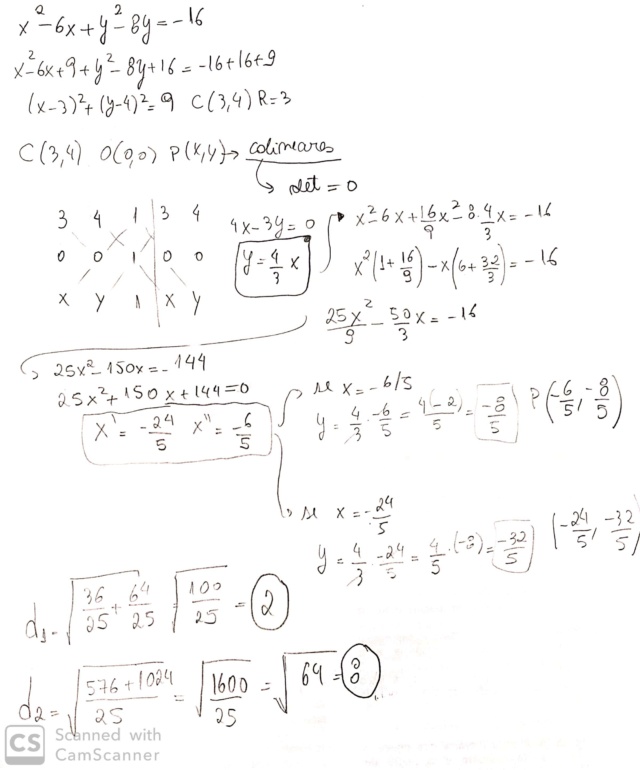 x²-6x+y²-8y=-16
x²-6x+9+y²-8y+16=-16+16+9
(x-3)²+(y-4)²=9 C(3,4) R=3
C(3,4) O(0,0) P(x,y)→ colineares
↳ det = 0
3 4 1 | 3 4
0 0 1 | 0 0
x y 1 | x y
4x-3y=0
y=4/3 x
x²-6x+16/9 x²-8·4/3 x=-16
x²(1+16/9)-x(6+32/3)=-16
25x²/9 - 50/3 x=-16
25x²-150x=-144
25x²+150x+144=0
x'=-24/5 x''=-6/5
se x=-6/5
y=4/3·-6/5=4(-2)/5=-8/5 P(-6/5,-8/5)
se x=-24/5
y=4/3·-24/5=4/5·(-8)=-32/5 (-24/5,-32/5)
d₁=√(36/25+64/25)=√(100/25)=2
d₂=√((576+1024)/25)=√(1600/25)=√64=8
CS Scanned with
CamScanner